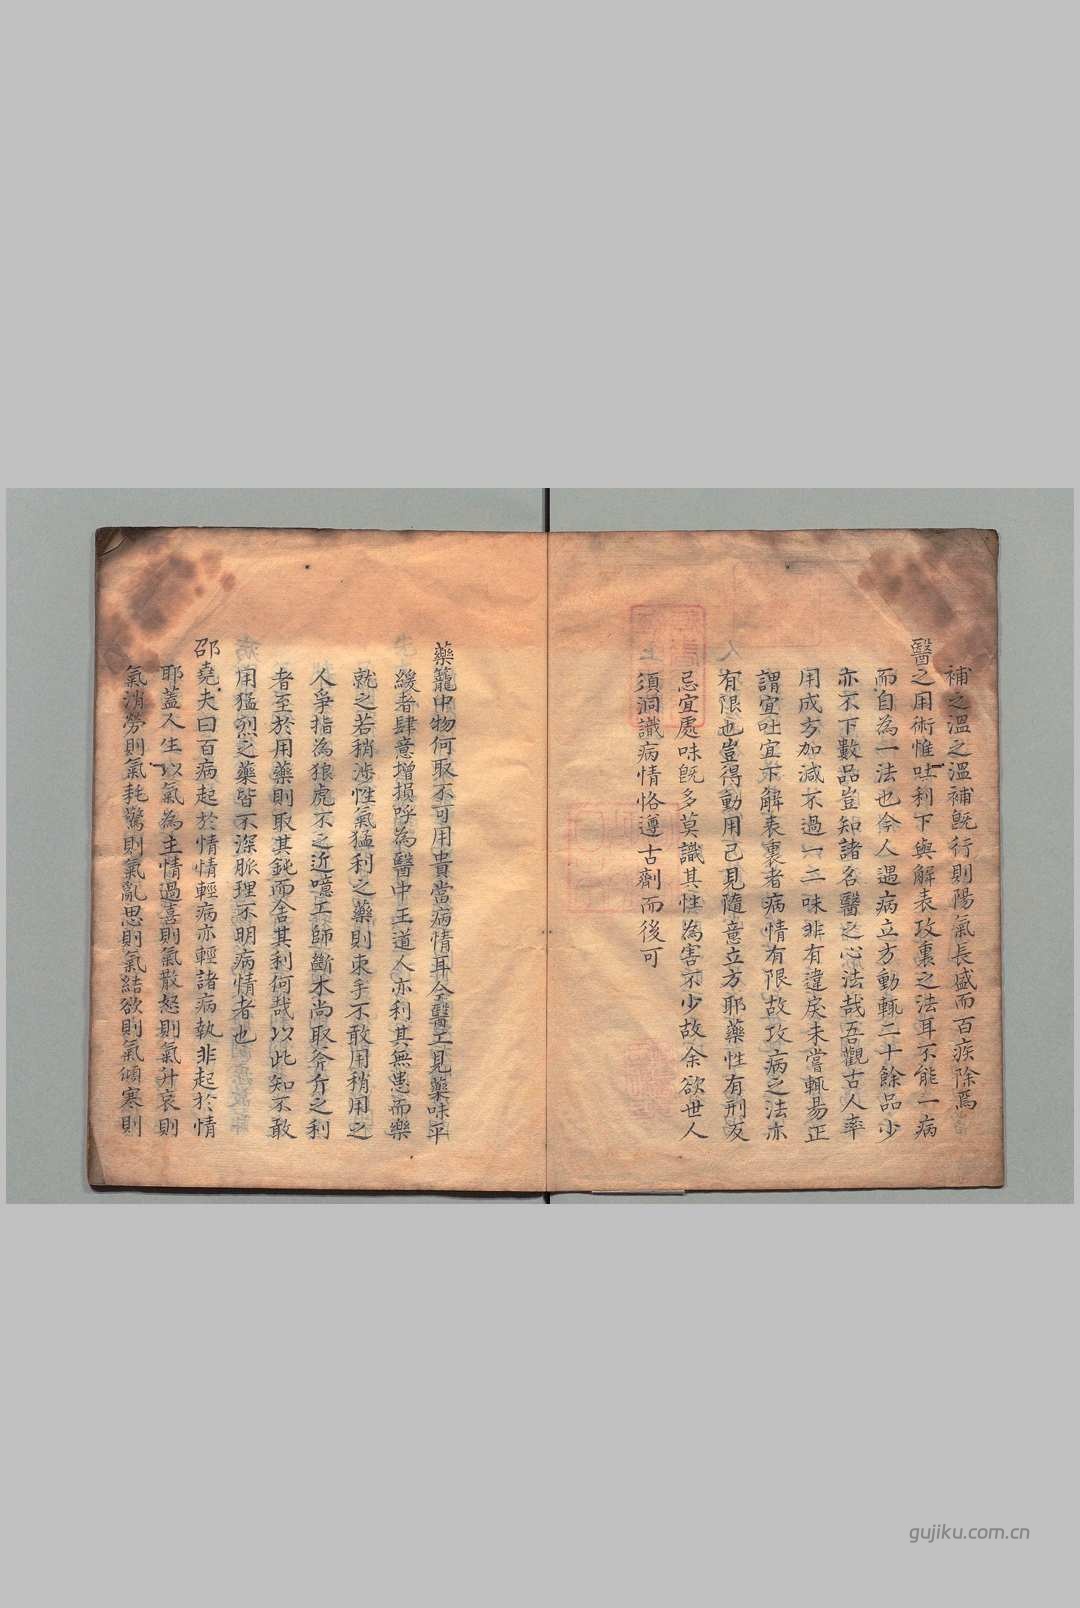 補之溫之溫補既行則陽氣長盛而百疾除焉
醫之用術惟吐利下與解表攻裏之法耳不能一病
而自為一法也今人遇病立方動輒二十餘品少
亦不下數品豈知諸名醫之心法哉吾觀古人率
用成方加減不過一二味非有違戾未嘗輒易正
謂宜吐宜下解表裏者病情有限故攻病之法亦
有限也豈得動用己見隨意立方耶藥性有刑反
忌宜處味既多莫識其性為害不少故余欲世人
須洞識病情恪遵古劑而後可
藥籠中物何取不可用貴當病情耳今醫工見藥味平
緩者肆意增損呼為醫中王道人亦利其無患而樂
就之若稍涉性氣猛利之藥則束手不敢用稍用之
人爭指為狼虎不之近噫工師斷木尚取斧斤之利
者至於用藥則取其鈍而舍其利何哉以此知不敢
用猛烈之藥皆不深脈理不明病情者也
邵堯夫曰百病起於情情輕病亦輕諸病孰非起於情
耶蓋人生以氣為主情過喜則氣散怒則氣升哀則
氣消勞則氣耗驚則氣亂思則氣結欲則氣傾寒則
gujiku.com.cn